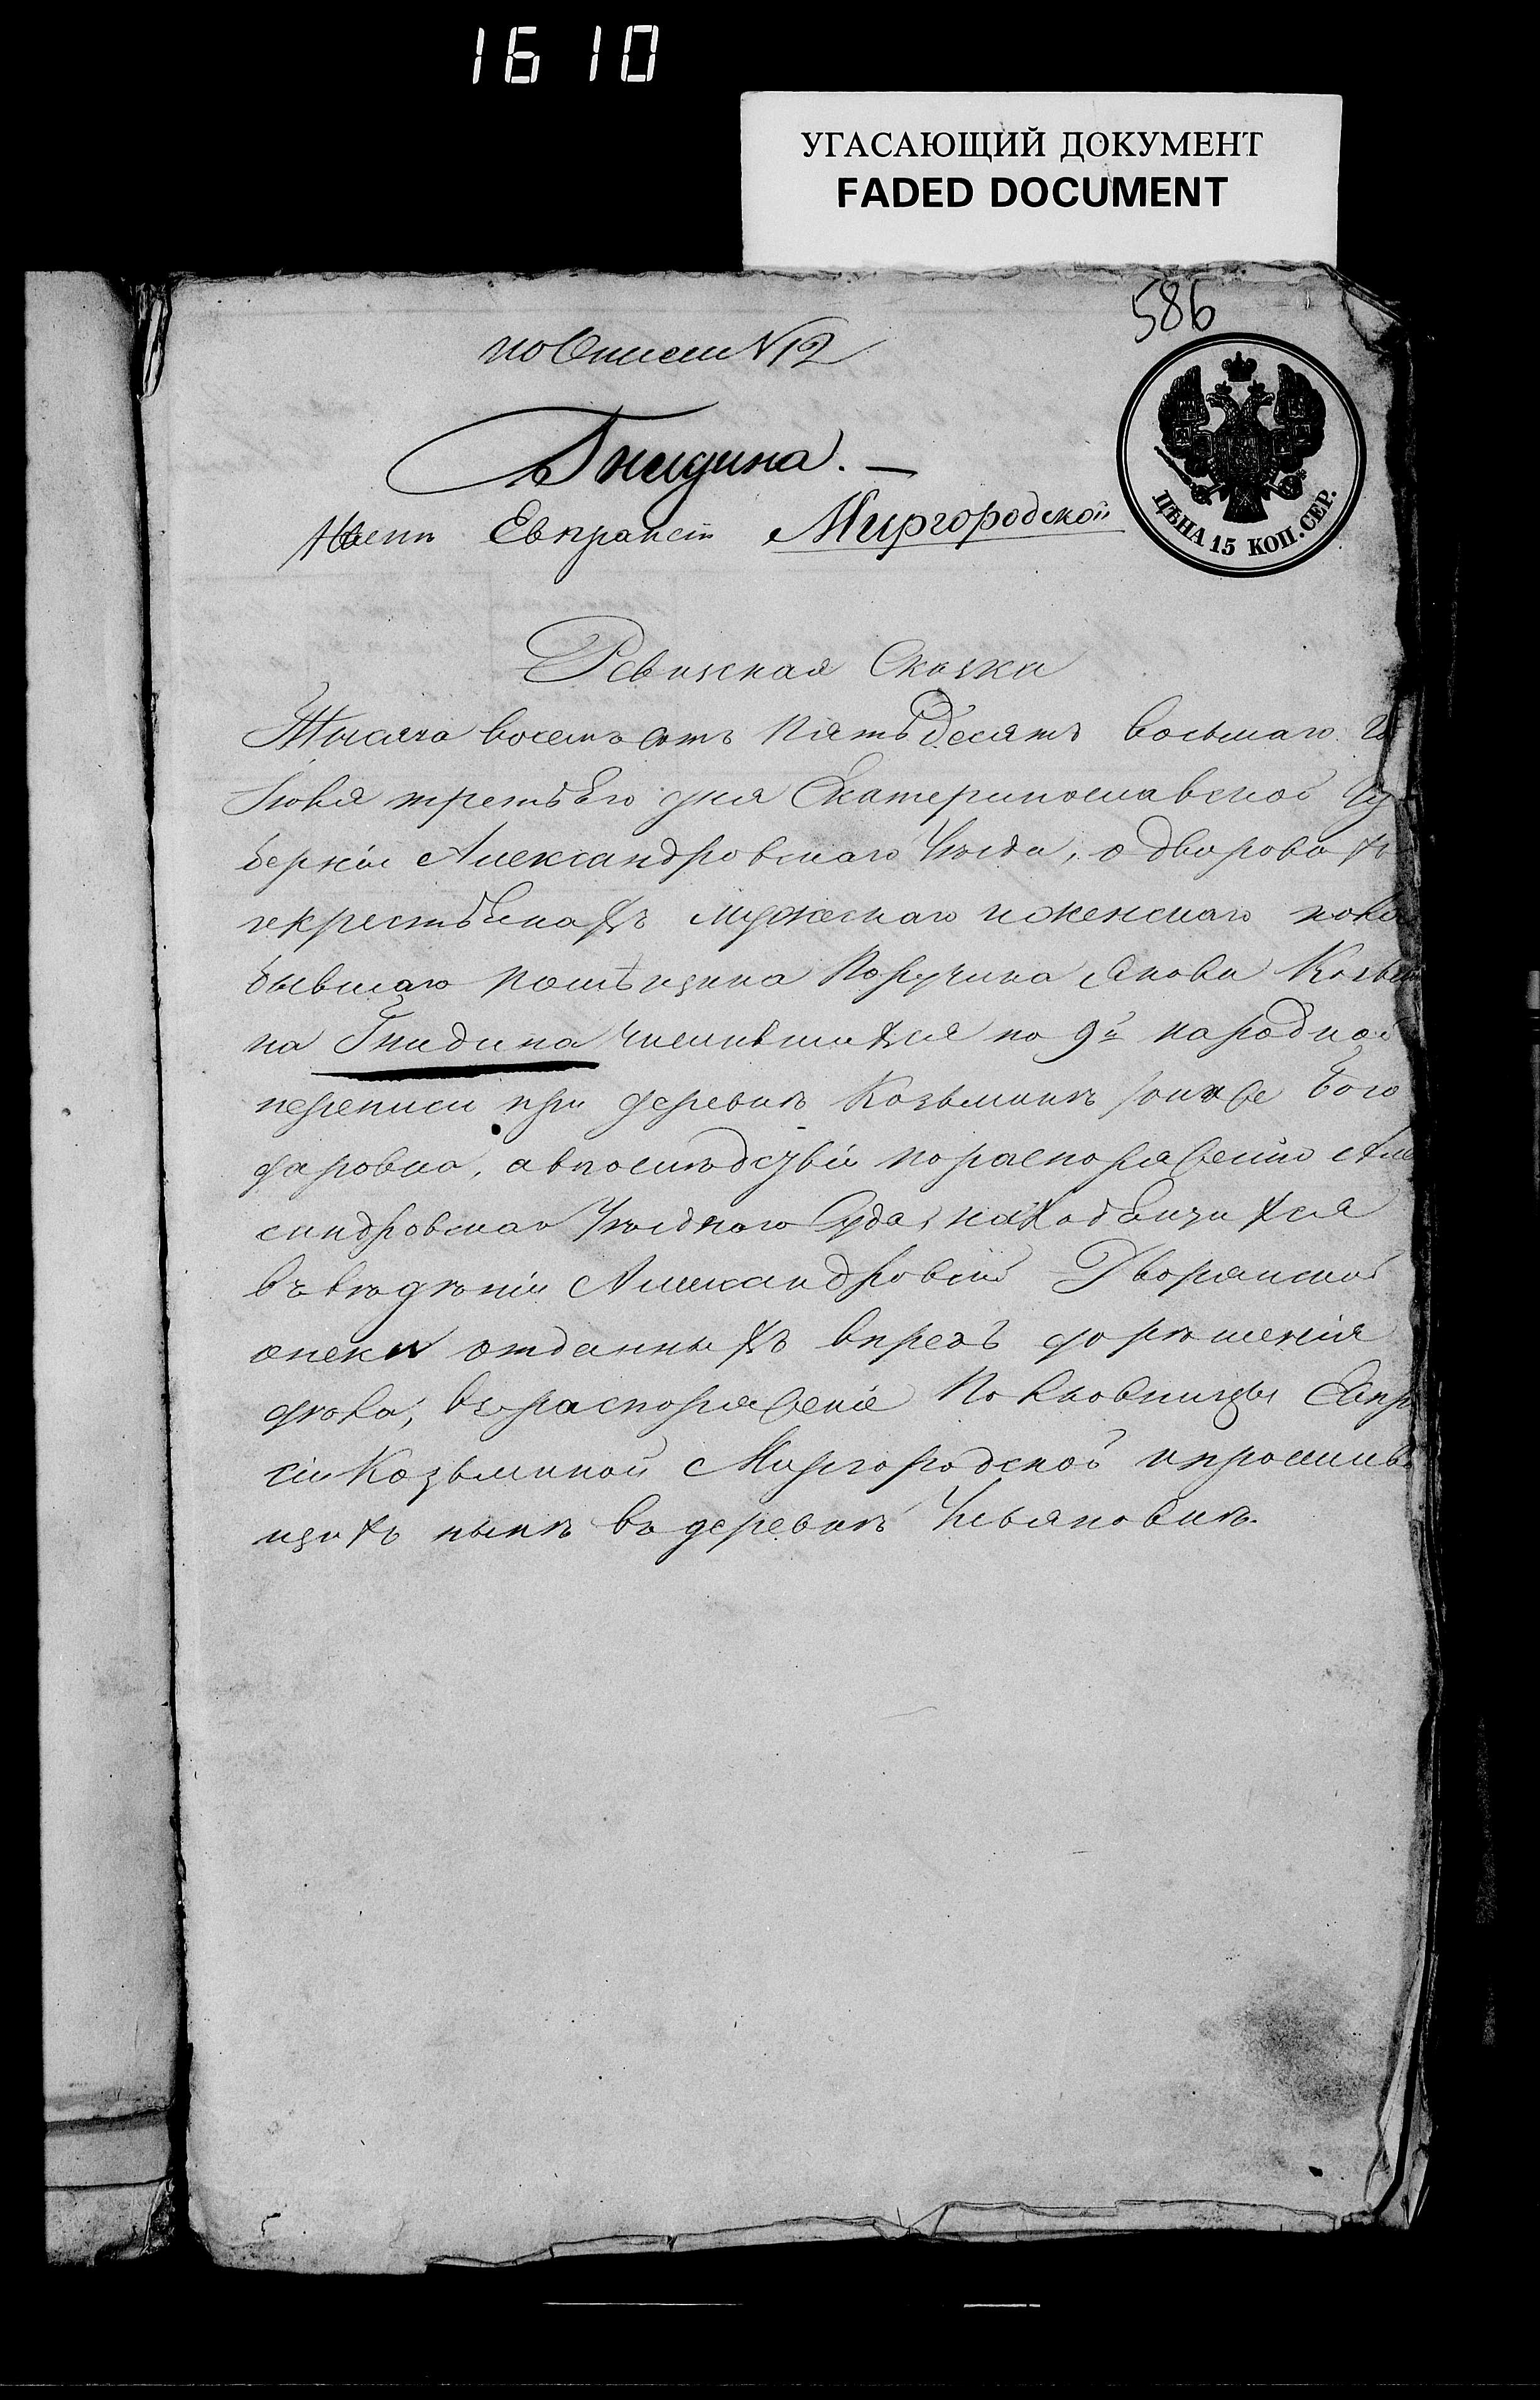 1610
УГАСАЮЩИЙ ДОКУМЕНТ
FADED DOCUMENT
586
по Описи N 12
Гнидина. —
Евпраксіи Миргородской
ЦѢНА 15 КОП. СЕР.
Ревизская Сказка
Тысяча восемь сотъ пятьдесятъ восьмаго Го
Іюня третьего дня Екатеринославской Гу
берніи Александровскаго Уѣзда, о дворовыхъ
и крестьянахъ мужескаго и женскаго пола
бывшаго помѣщика Поручика Якова Козьм
на Гнидина числившихся по 9й народной
переписи при деревнѣ Козьминкѣ онаже Бого
даровка, а впослѣдствіи по распоряженію Але
ксандровскаго Уѣзднаго Суда, находящихся
въ вѣдѣніи Александровской Дворянской
опеки отданныхъ впредь до рѣшенія
дѣла, въ распоряженіе Полковницы Евпра
ксіи Козьминой Миргородской и проживаю
щихъ нынѣ въ деревнѣ Ульяновкѣ.